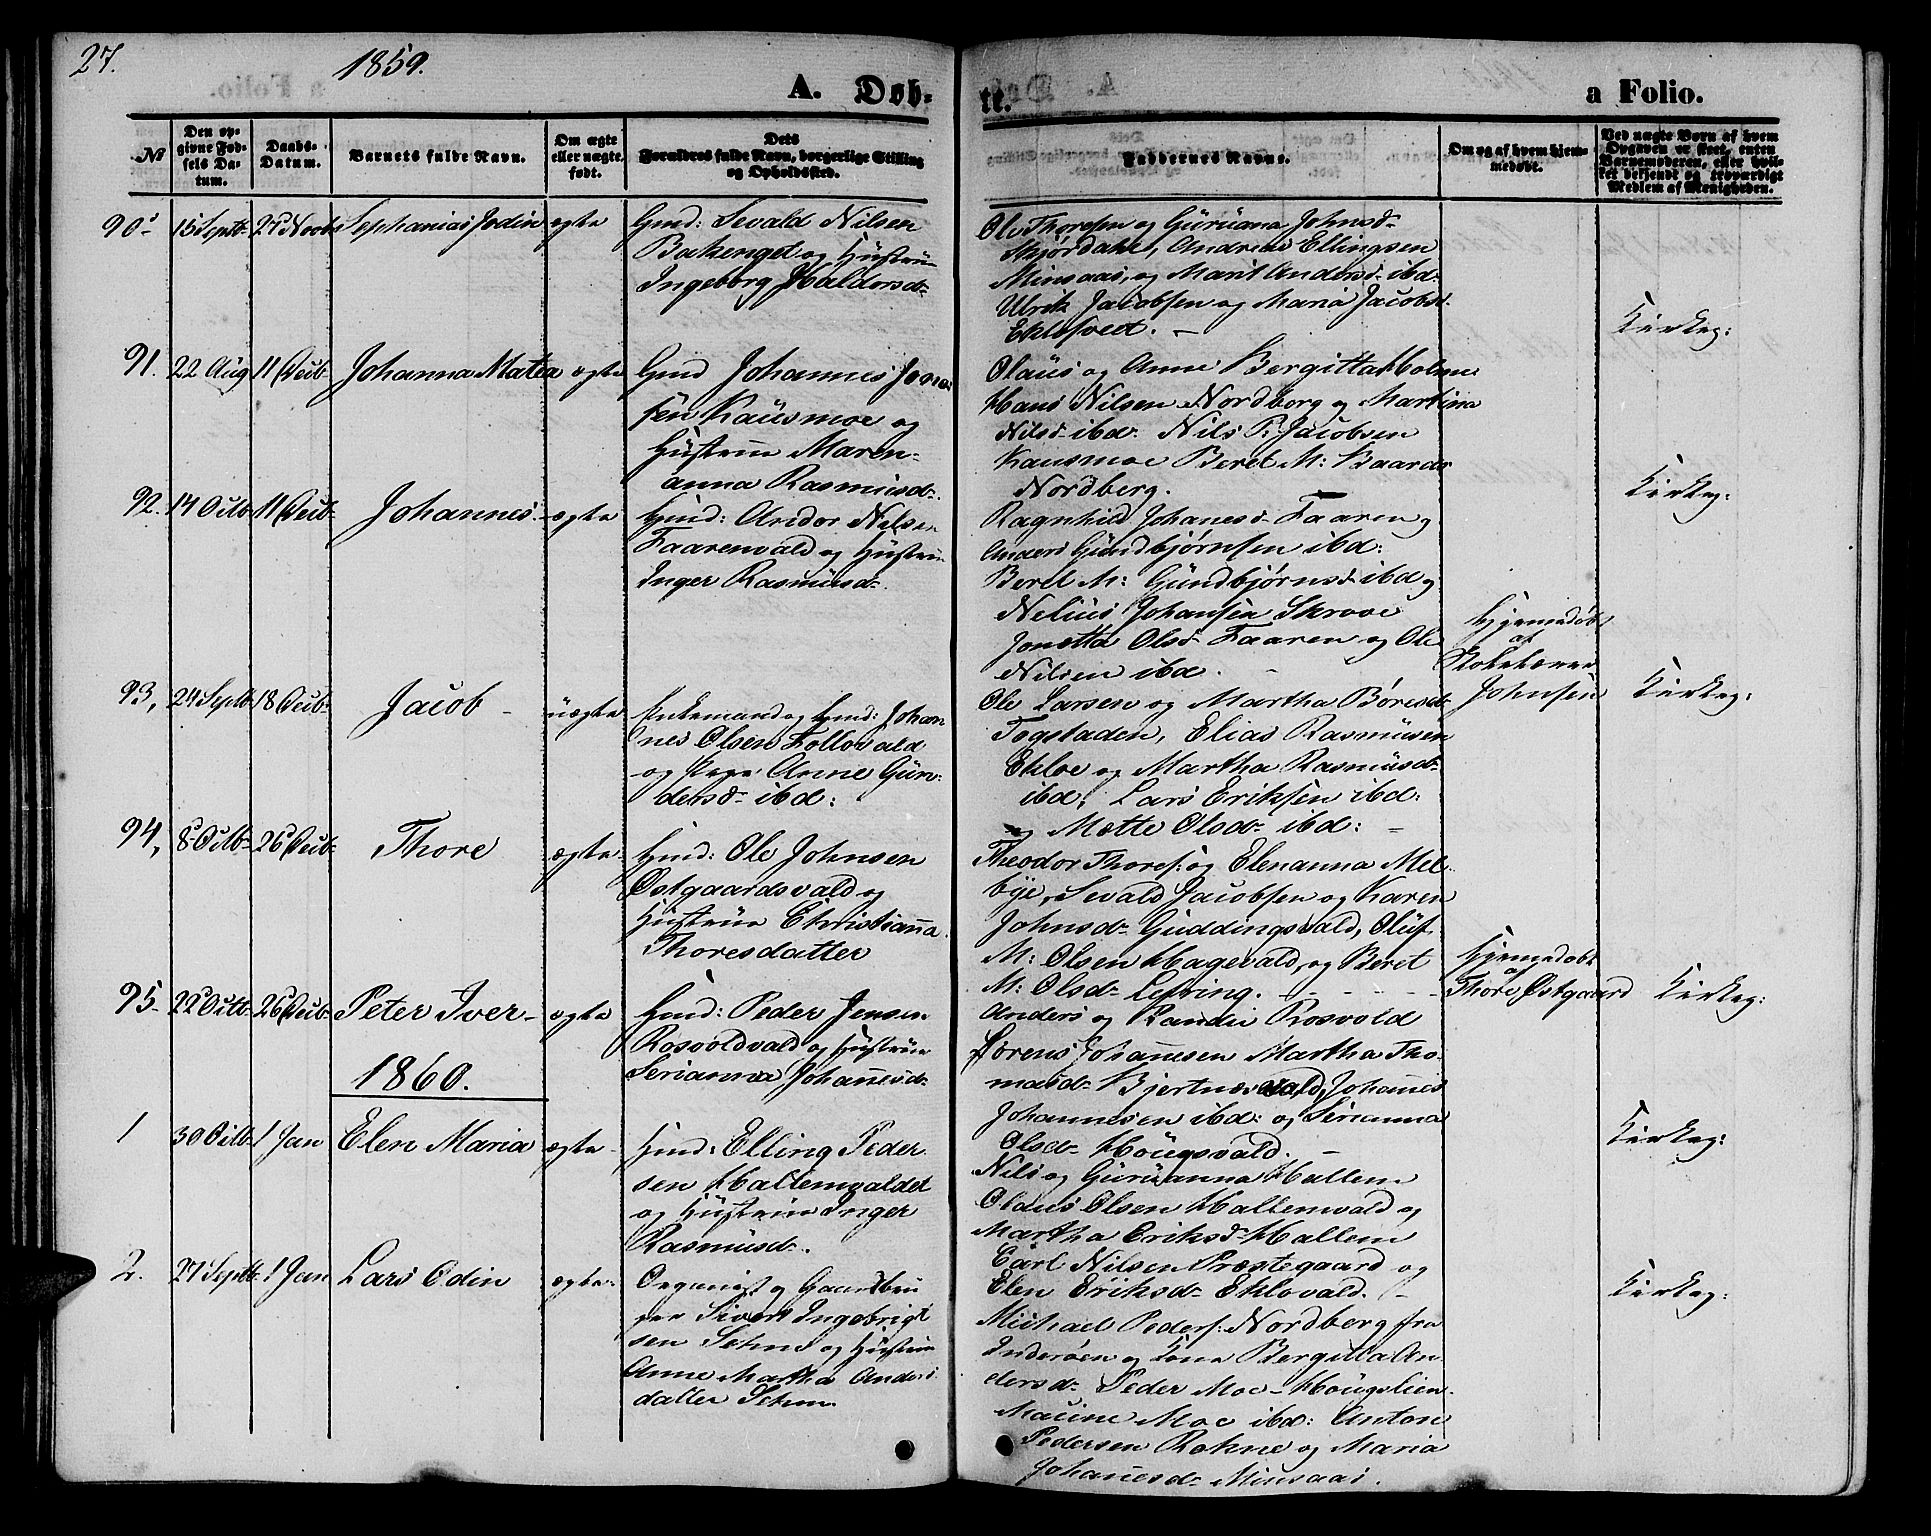 27.
1859.
A. Døb-
te.
a Folio.
№
Den op-
givne Fød-
sels Da-
tum.
Daabs-
Datum.
Barnets fulde Navn.
Om ægte
eller uægte
født.
Dets
Forældres fulde Navn, borgerlige Stilling
og Opholdssted.
Faddernes Navne.
Om og af hvem hjem-
medøbt.
Ved uægte Børn af hvem
Opgaven er skeet, enten
Barnemoderen, eller hvil-
ket bekjendt og troværdigt
Medlem af Menigheden.
90
15 Septb
27 Novb
Sephanias Jodin
ægte
Gmd: Sevald Nilsen
Bakenget og Hustrue
Ingeborg Haldorsd-
Ole Thoresen og Guruana Johnsd-
Skjørdahl, Andreas Ellingsen
Minsaas, og Marit Andersd- ibd-
Ulrik Jacobsen og Maria Jacobsd
Ekloſveet. -
Kirkeg:
91.
22 Aug
11 Decb
Johanna Matea
ægte
Gmd Johannes Jona-
sen Kausmoe og
Hustrue Maren-
anna Rasmusd-.
Olaus og Anne Bergitta Holme
Hans Nilsen Nordborg og Martina
Nilsd- ibd. Nils P. Jacobsen
Kausmoe Beret M: Baardsd
Nordberg.
Kirkeg:
92.
14 Octb
11 Decb
Johannes
ægte
Hmd: Andor Nilsen
Faarenvald og Hustrue
Inger Rasmusd-
Ragnhild Johanesd- Faaren og
Anders Gundbjørnsen ibd:
Beret M: Gundbjørnsd- ibd og
Nelius Johansen Skrove
Jonetta Olsd- Faaren og Ole
Nilsen ibd. -
Hjemmedøbt
af
Skoleholder
Johnsen
Kirkeg:
93,
24 Septb
18 Decb
Jacob -
uægte
Enkemand og Hmd: Johan
nes Olsen Follovald
og Pige Anne Gun-
dersd- ibd:
Ole Larsen og Martha Børesd-
Togstaden, Elias Rasmusen
Ekloe og Martha Rasmusd-
ibd, Lars Eriksen ibd:
og Mætte Olsd- ibd: -
94,
8 Octb-
26 Decb-
Thore
ægte
Hmd: Ole Johnsen
Østgaardsvald og
Hustrue Christianna
Thoresdatter
Theodor Thores: og Elenanna Mel-
bye, Sevald Jacobsen og Karen
Johnsd- Guddingsvald, Oluf
M: Olsen Hagevald, og Beret
M: Olsd- Leiring.
Hjemmedøbt
af
Thore Østgaard
Kirkeg:
95-
22 Octb
26 Decb-
Peter Iver -
ægte
Hmd: Peder Jensen
Rosvoldvald og Hustrue
Serianna Johanesd-
Anders og Randi Rosvold
Sørens Johanesen Martha Tho-
masd- Bjertnæsvald, Johanes
Johannesen ibd: og Serianna
Olsd- Hougsvald. -
1860.
1
30 Octb
1 Jan
Elen Maria
ægte
Hmd: Elling Peder
sen Hallemvaldet
og Hustrue Inger
Rasmusd-.
Nils og Guruanna Hallem
Olaus Olsen Hallemvald og
Martha Eriksd- Hallem
Carl Nilsen Præstegaard og
Elen Eriksd- Eklovald. -
Kirkeg:
2.
27 Septb
1 Jan
Lars Odin
ægte
Organist og Gaardbru
ger Sivert Ingebrigt
sen Sehm og Hustrue
Anne Martha Anders
datter Sehm.
Michael Peders: Nordberg fra
Inderøen og Kone Bergitta An
dersd- Peder Moe - Hougslien
Maurine Moe ibd: Anton
Pedersen Rohne og Maria
Johanesd- Minsaas.
Kirkeg: